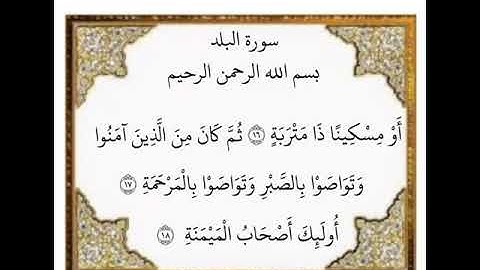 سورة البلد
بسم الله الرحمن الرحيم
أَوْ مِسْكِينًا ذَا مَتْرَبَةٍ ﴿١٦﴾ ثُمَّ كَانَ مِنَ الَّذِينَ آمَنُوا
وَتَوَاصَوْا بِالصَّبْرِ وَتَوَاصَوْا بِالْمَرْحَمَةِ ﴿١٧﴾
أُولَئِكَ أَصْحَابُ الْمَيْمَنَةِ ﴿١٨﴾